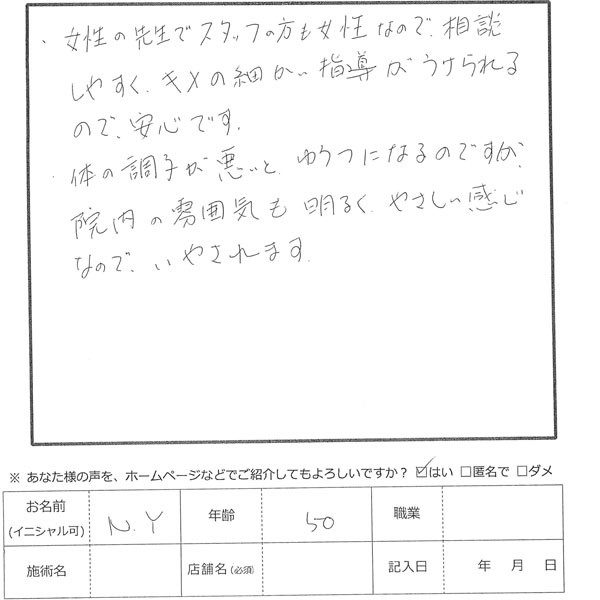 ・女性の先生でスタッフの方も女性なので、相談
しやすく、キメの細かい指導がうけられる
ので、安心です。
・体の調子が悪いと、ゆううつになるのですが、
院内の雰囲気も明るく、やさしい感じ
なので、いやされます。
※ あなた様の声を、ホームページなどでご紹介してもよろしいですか？ ☑はい □匿名で □ダメ
お名前 (イニシャル可) N.Y 年齢 50 職業
施術名 店舗名(必須) 記入日 年 月 日